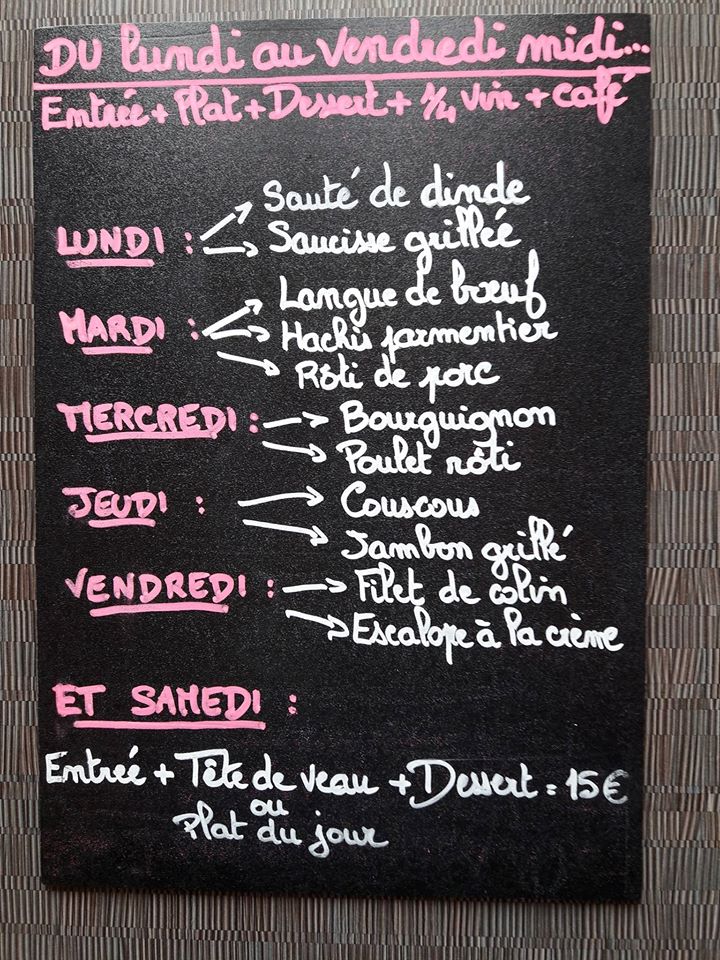 DU lundi au vendredi midi...
Entrée + Plat + Dessert + 1/4 vin + café
Sauté de dinde
LUNDI : Saucisse grillée
Langue de bœuf
MARDI : Hachis parmentier
Rôti de porc
MERCREDI : Bourguignon
Poulet rôti
JEUDI : Couscous
Jambon grillé
VENDREDI : Filet de colin
Escalope à la crème
ET SAMEDI :
Entrée + Tête de veau + Dessert = 15€
ou
Plat du jour